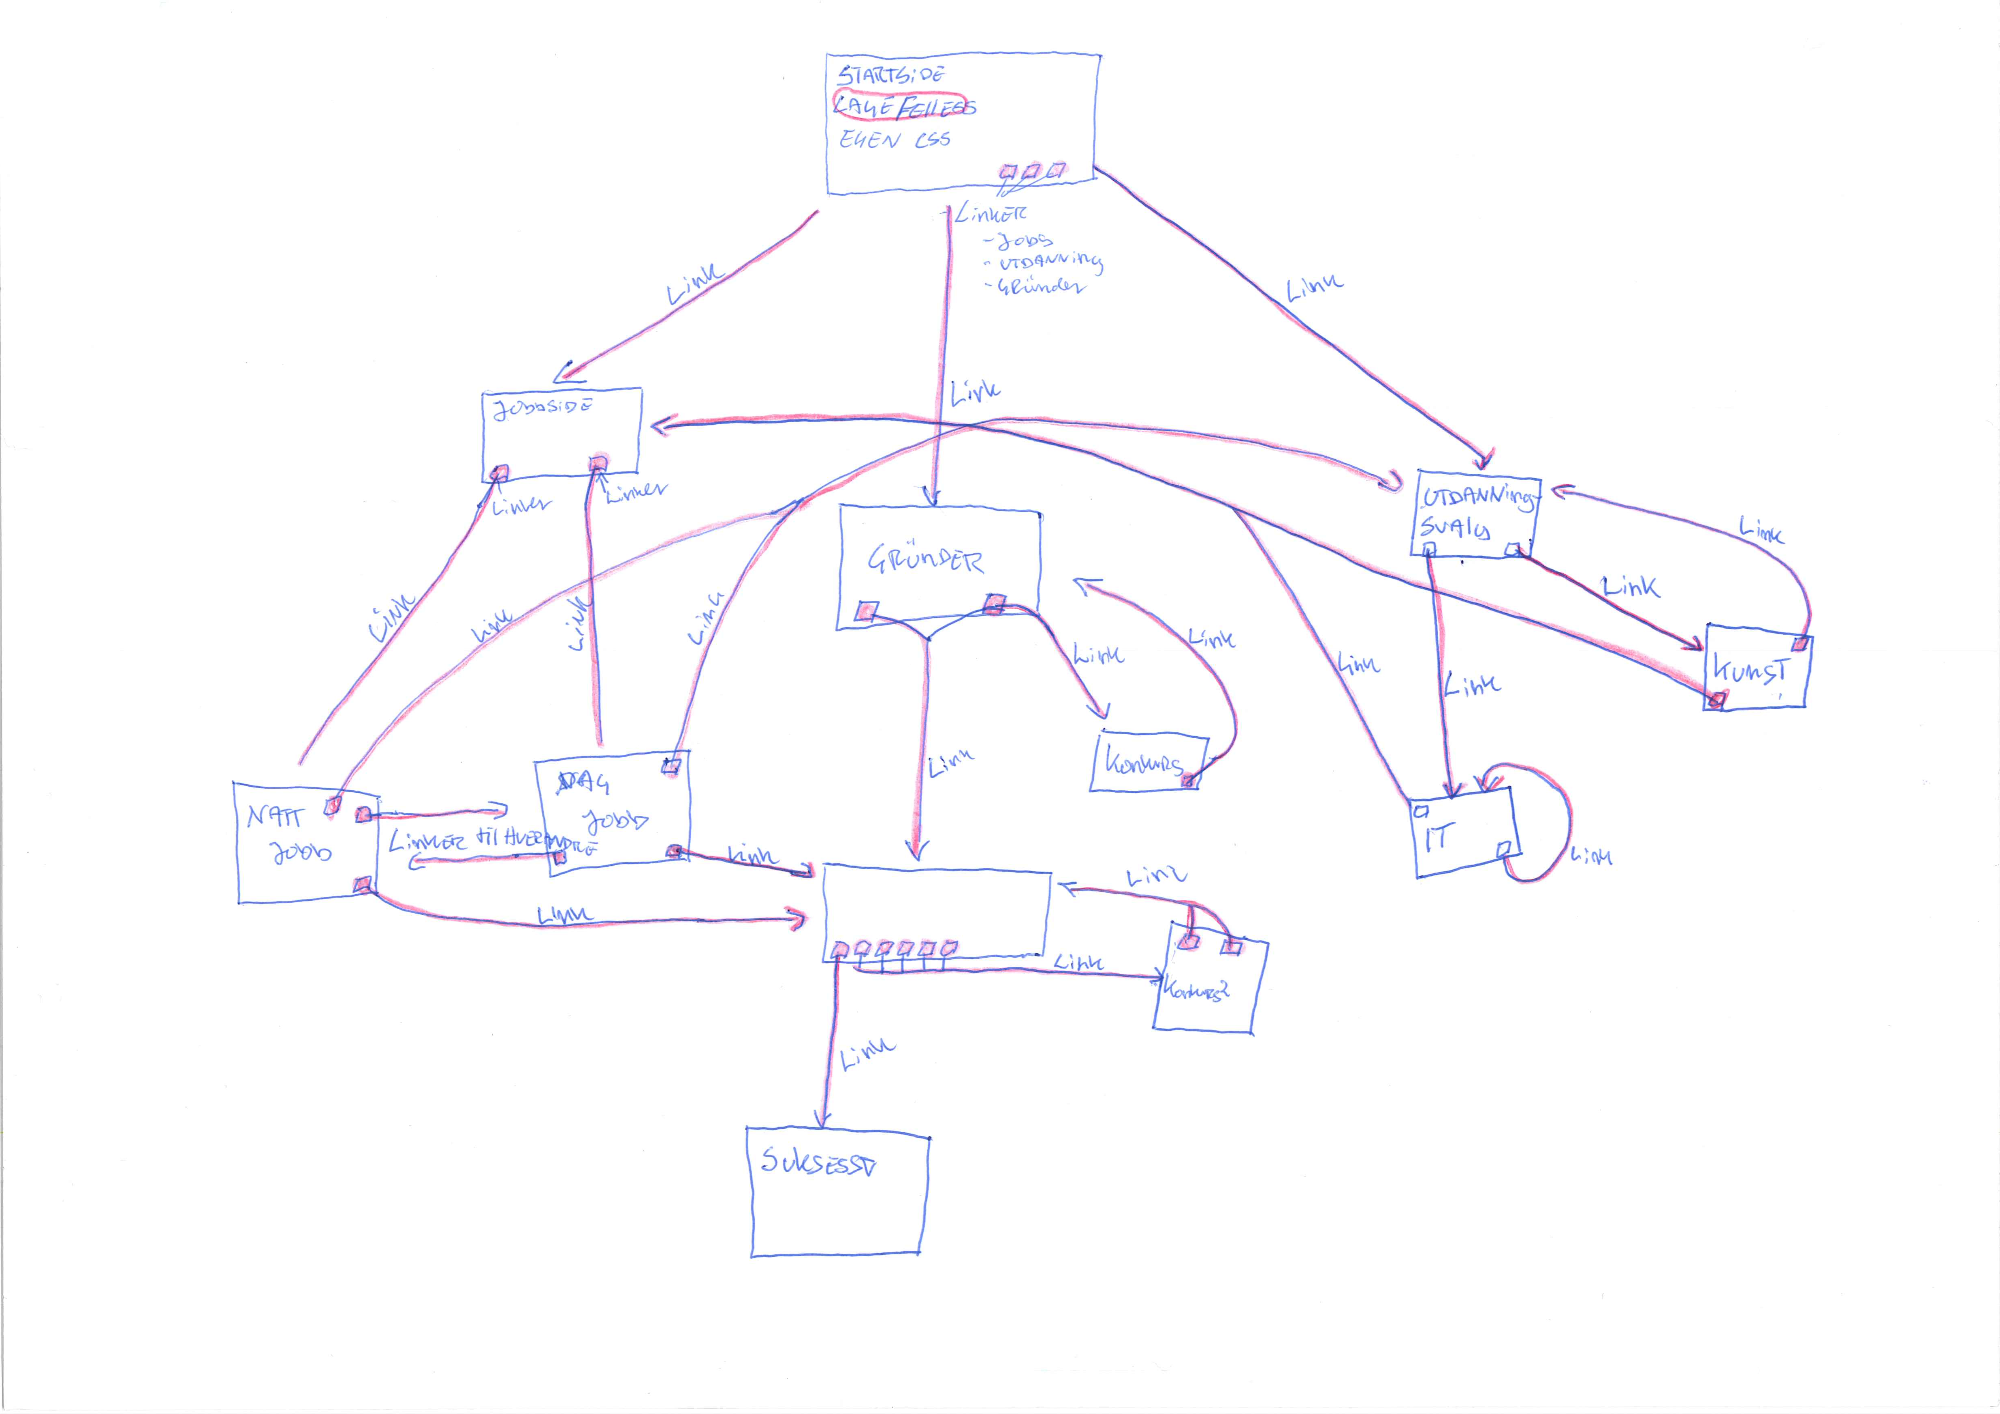 STARTSIDE
LAGE FELLESS
EGEN CSS
LINKER
- Jobs
- UTDANNING
- Gründer
Link
Link
Link
JOBBSIDE
Linker
Linker
UTDANNING-
SVALG
Link
Link
GRÜNDER
Link
Link
Link
Link
Link
Link
Link
Link
Link
KUNST
Link
NATT
Jobb
LINKER til HVERANDRE
DAG
Jobb
Konkurs
IT
Link
Link
Link
Link
Link
Konkurs2
Link
SUKSESS